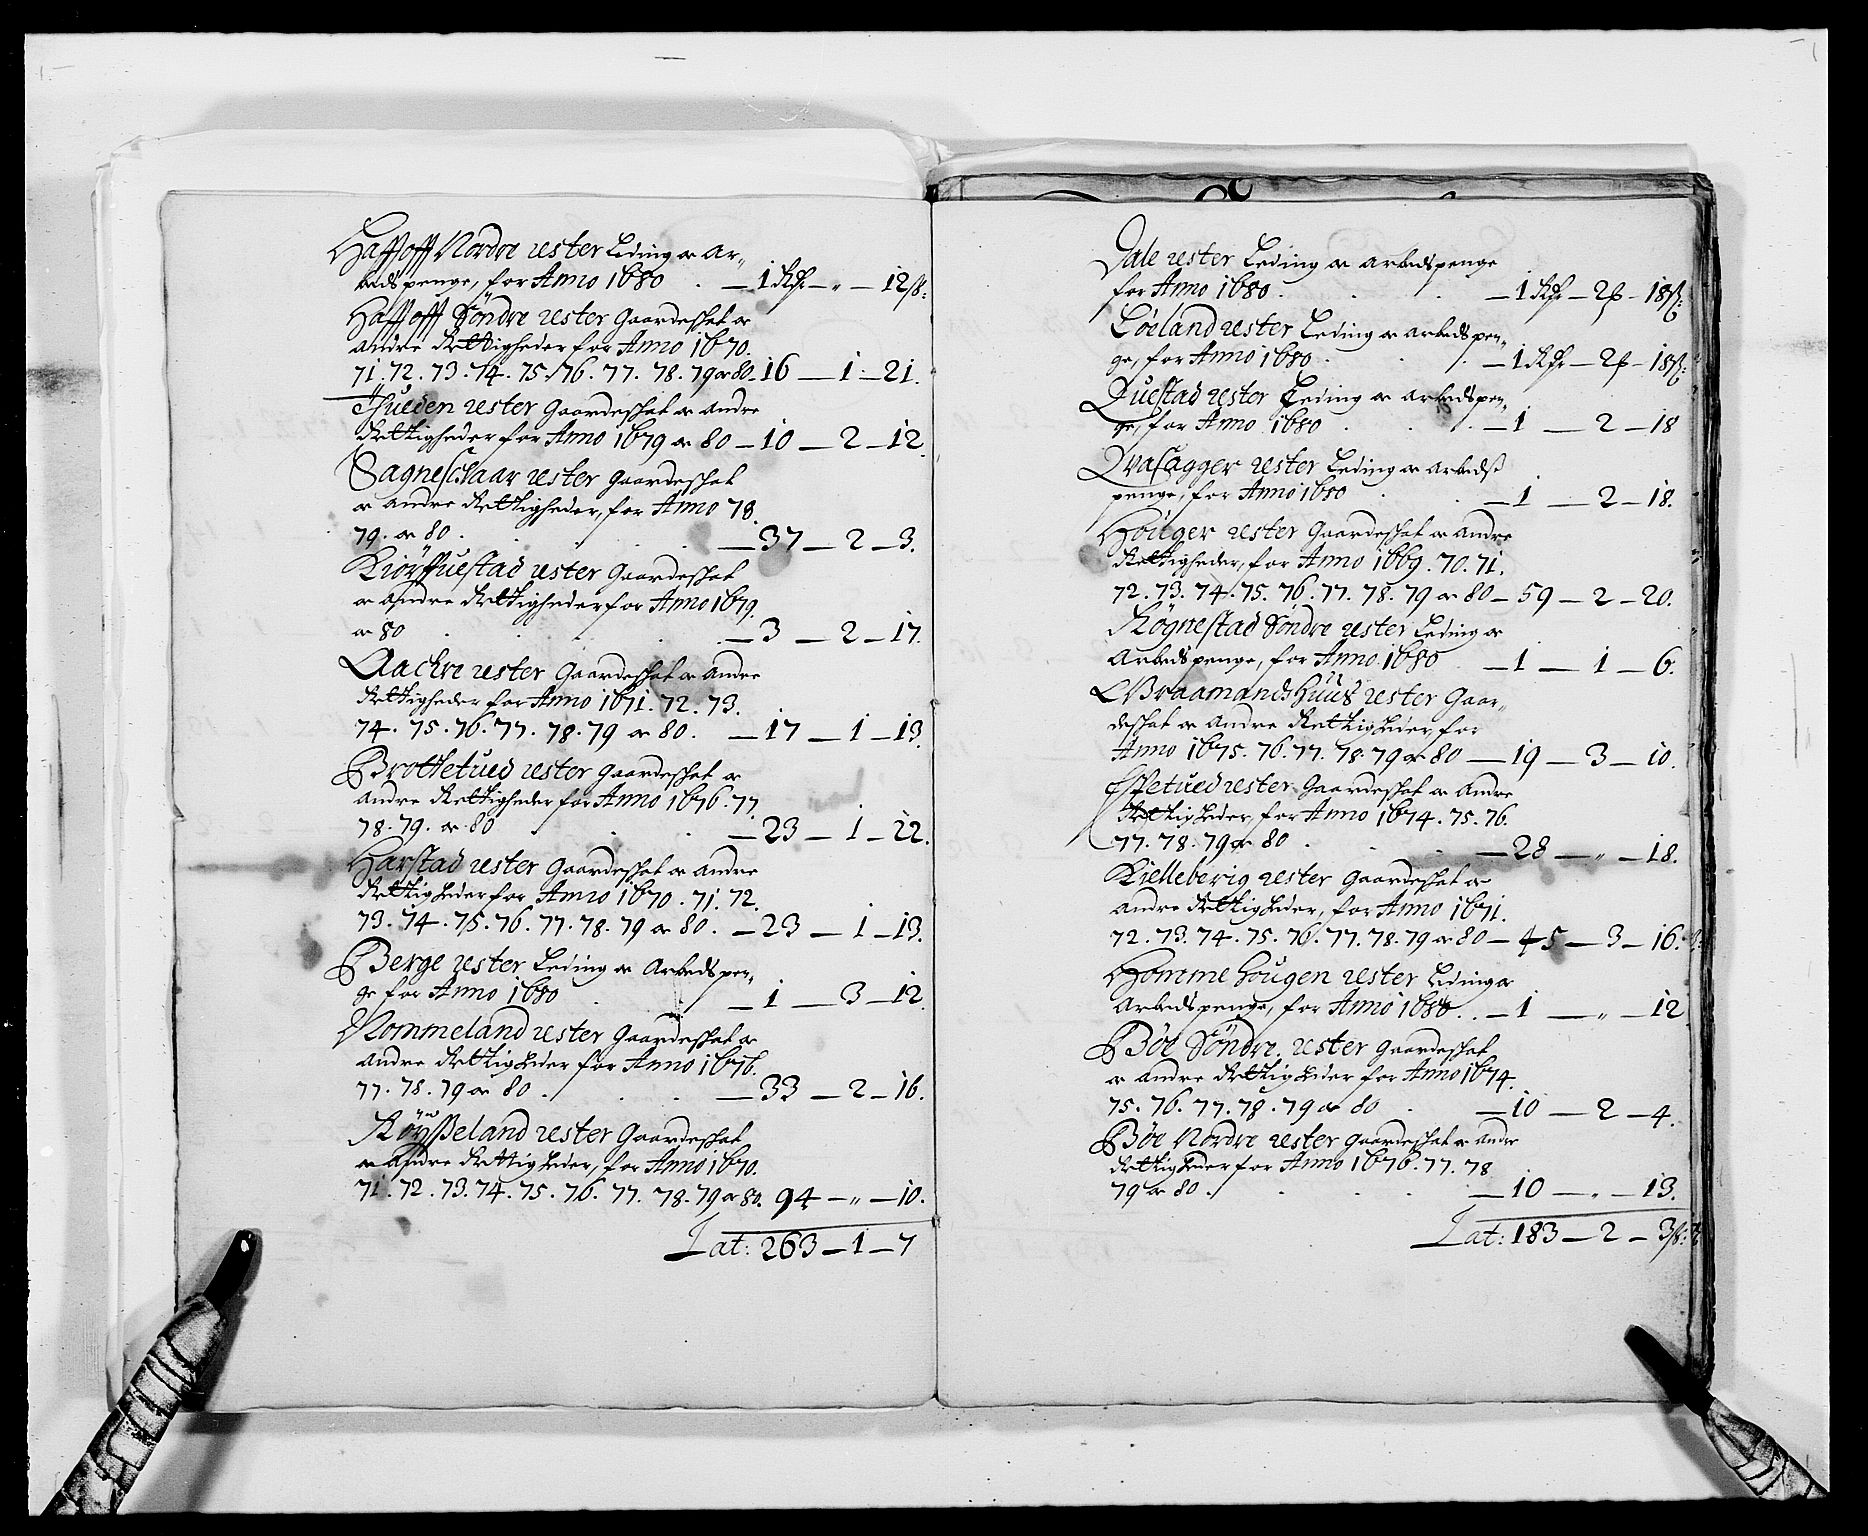 Haffoff Nordre rester Leding oc Ar-
bedspenge, for Anno 1680 . — 1 Rdr — „ — 12 ß:
Haffoff Söndre rester Gaardeskat oc
andre Rettigheder for Anno 1670.
71. 72. 73. 74. 75. 76. 77. 78. 79 oc 80 — 16 — 1 — 21.
Thueden rester Gaardeskat oc andre
Rettigheder for Anno 1679 oc 80 — 10 — 2 — 12.
rester Gaardeskat
oc andre Rettigheder, for Anno 78.
79. oc 80 . — 37 — 2 — 3.
rester Gaardeskat
oc andre Rettigheder for Anno 1679.
oc 80 . — 3 — 2 — 17.
Aachre rester Gaardeskat oc Andre
Rettigheder for Anno 1671. 72. 73.
74. 75. 76. 77. 78. 79 oc 80. — 17 — 1 — 13.
Brottetued rester Gaardeskat oc
andre Rettigheder for Anno 1676. 77.
78. 79. oc 80 — 23 — 1 — 22.
Harstad rester Gaardeskat oc andre
Rettigheder for Anno 1670. 71. 72.
73. 74. 75. 76. 77. 78. 79 oc 80. — 23 — 1 — 13.
Berge rester Leding oc Arbedspen-
ge for Anno 1680 — 1 — 3 — 12
Nommeland rester Gaardeskat oc
andre Rettigheder for Anno 1676.
77. 78. 79 oc 80 . — 33 — 2 — 16.
Röysseland rester Gaardeskat
oc Andre Rettigheder, for Anno 1670.
71. 72. 73. 74. 75. 76. 77. 78. 79 oc 80. 94 — „ — 10.
Lat: 263 — 1 — 7
Dale rester Leding oc arbedspenge
for Anno 1680 . — 1 Rdr — 2 ß — 18 ß:
Löeland rester Leding oc arbedspen-
ge, for Anno 1680 . — 1 Rdr — 2 ß — 18 ß:
Questad rester Leding oc arbedspen-
ge, for Anno 1680 . — 1 — 2 — 18
Qvasagger rester Leding oc Arbeds
penge, for Anno 1680 — 1 — 2 — 18.
Höiger rester Gaardeskat oc Andre
Rettigheder, for Anno 1669. 70. 71.
72. 73. 74. 75. 76. 77. 78. 79 oc 80 — 59 — 2 — 20.
Rögnestad Söndre rester Leding oc
Arbedspenge, for Anno 1680 — 1 — 1 — 6.
Vraamandshuus rester Gaar-
deskat oc Andre Rettigheder, for
Anno 1675. 76. 77. 78. 79 oc 80 — 19 — 3 — 10.
Espetued rester Gaardeskat oc Andre
Rettigheder, for Anno 1674. 75. 76.
77. 78. 79 oc 80 . — 28 — „ — 18.
Kielleberig rester Gaardeskat oc
andre Rettigheder, for Anno 1671.
72. 73. 74. 75. 76. 77. 78. 79 oc 80 — 45 — 3 — 16.
Homme hougen rester Leding oc
Arbedspenge, for Anno 1680 . — 1 — „ — 12
Böe Söndre rester Gaardeskat
oc andre Rettigheder for Anno 1674.
75. 76. 77. 78. 79 oc 80 . — 10 — 2 — 4.
Böe Nordre rester Gaardeskat oc Andre
Rettigheder for Anno 1676. 77. 78
79 oc 80 . — 10 — „ — 13.
Lat: 183 — 2 — 3 ß: